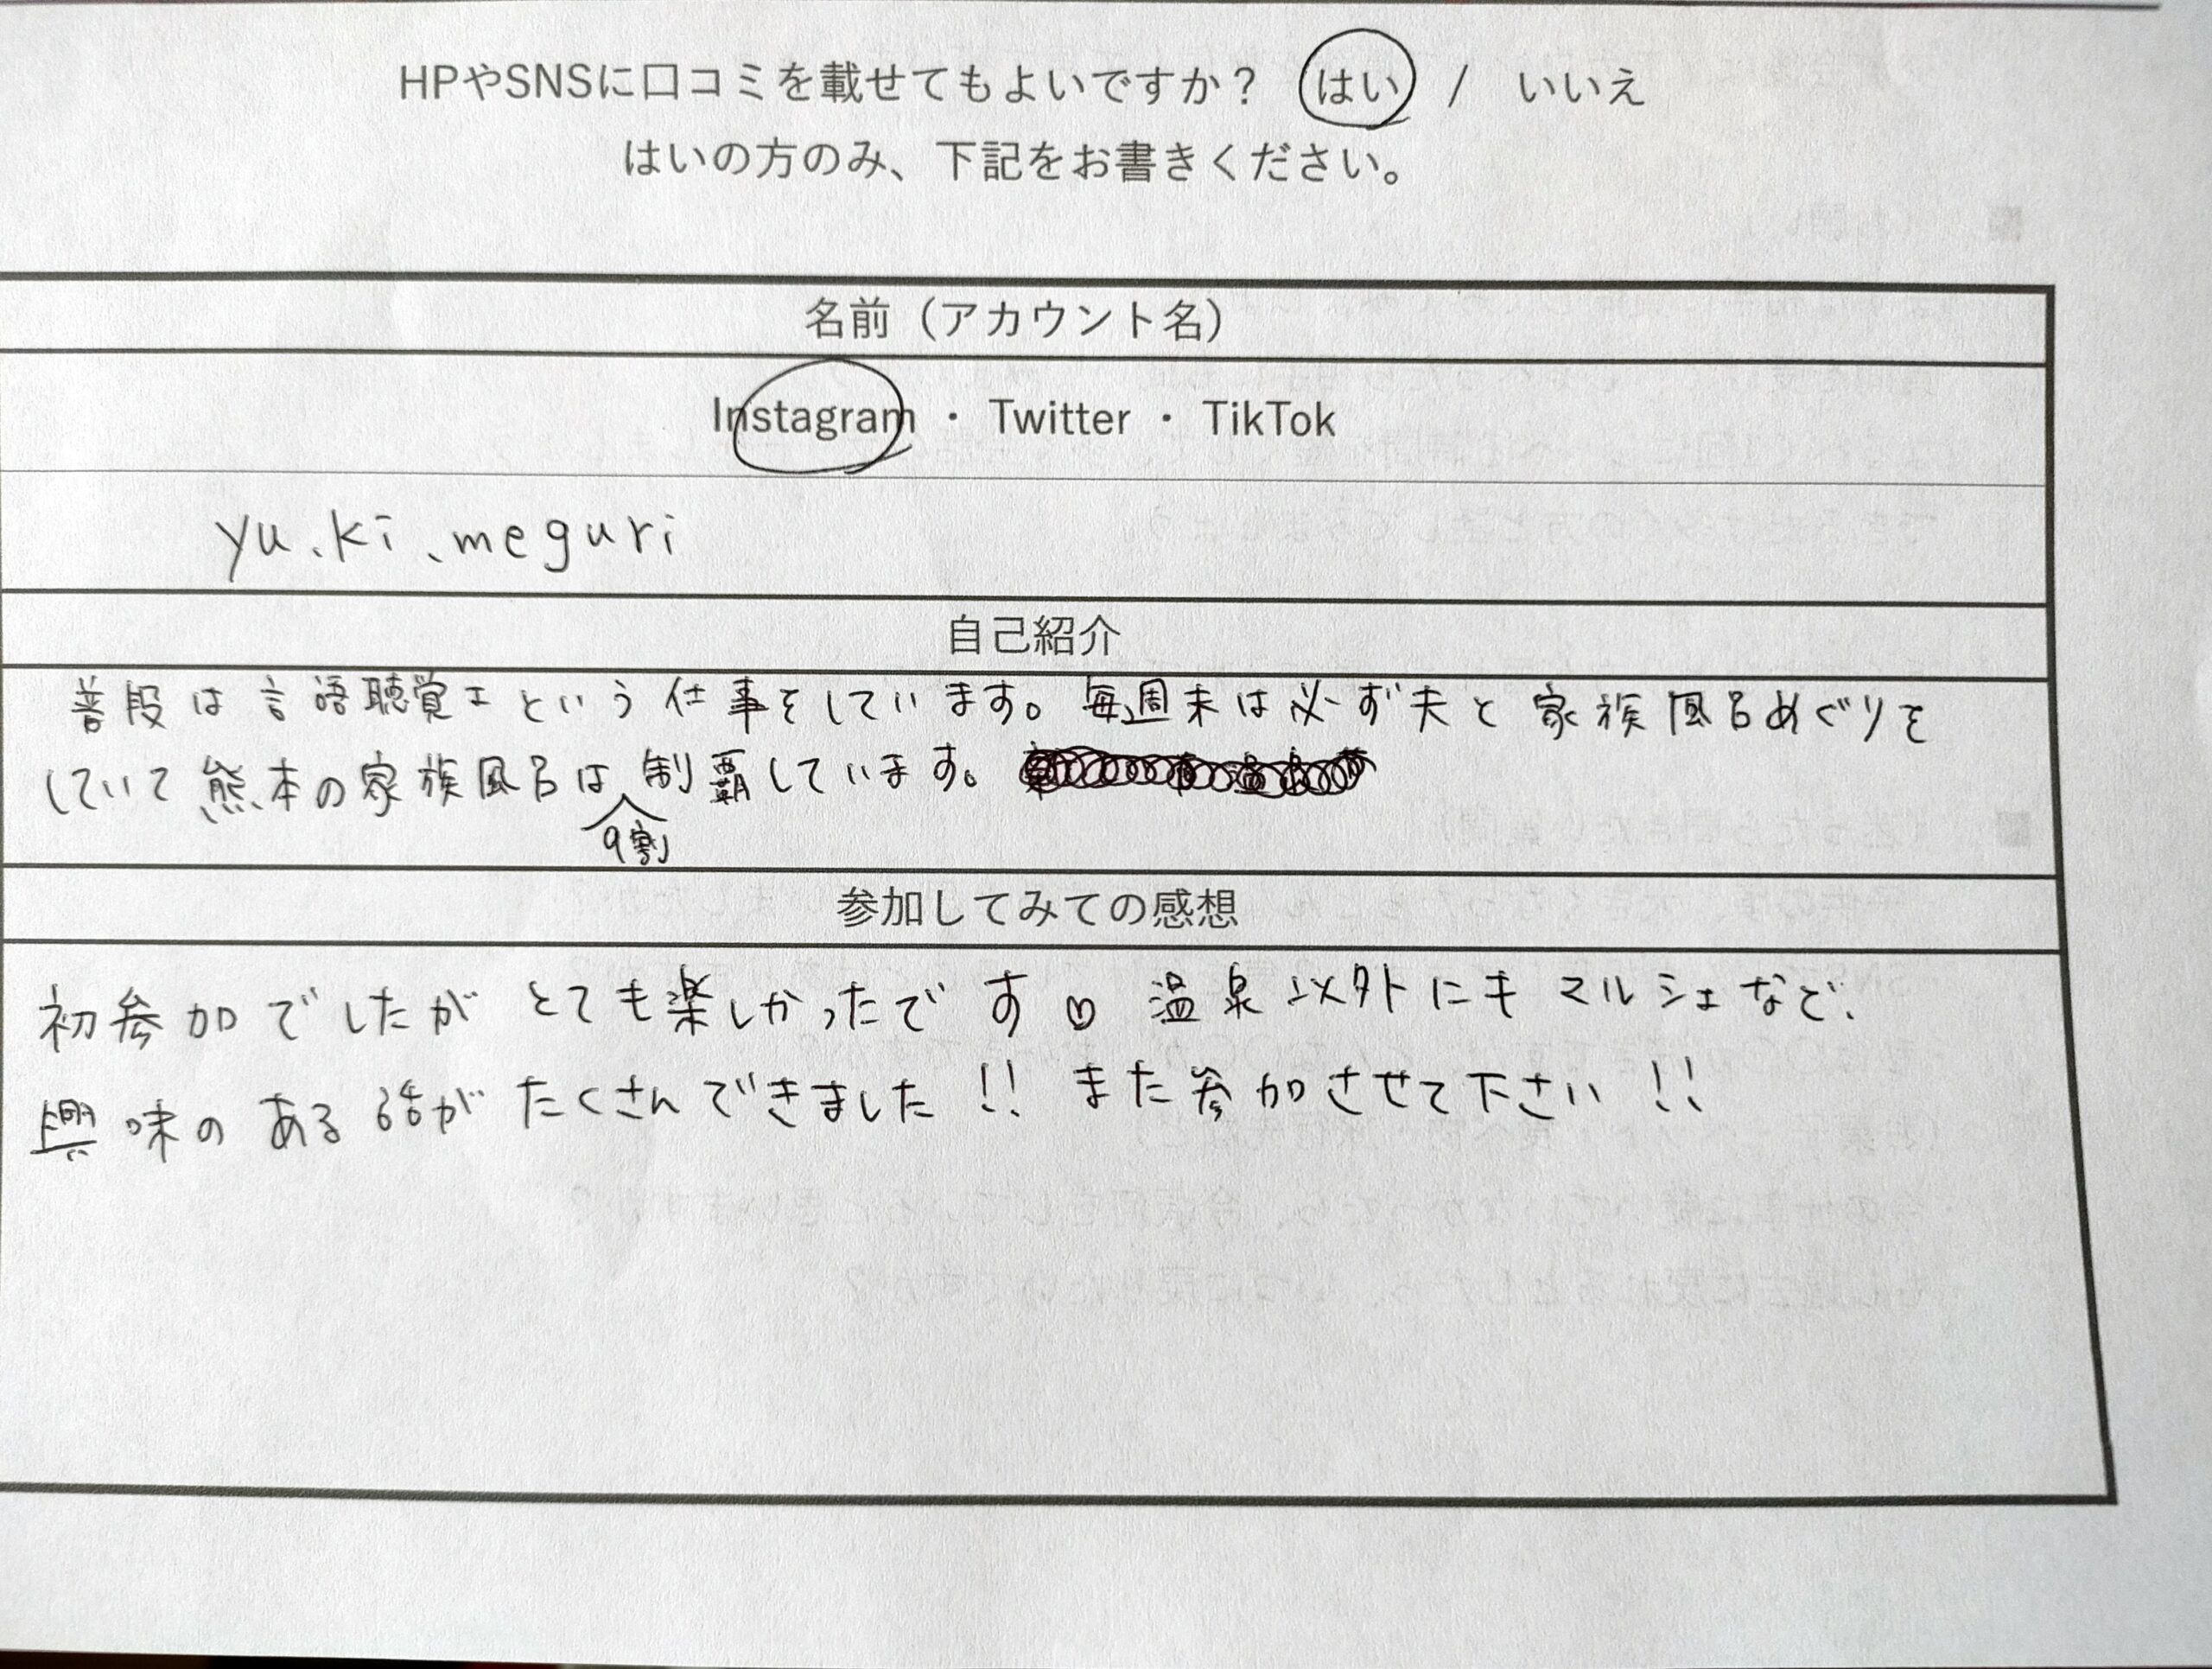 HPやSNSに口コミを載せてもよいですか？ はい / いいえ
はいの方のみ、下記をお書きください。
名前（アカウント名）
Instagram ・ Twitter ・ TikTok
yu.ki.meguri
自己紹介
普段は言語聴覚士という仕事をしています。毎週末は必ず夫と家族風呂めぐりを
していて熊本の家族風呂は制覇しています。
9割
参加してみての感想
初参加でしたがとても楽しかったです♡ 温泉以外にもマルシェなど、
興味のある話がたくさんできました!! また参加させて下さい!!